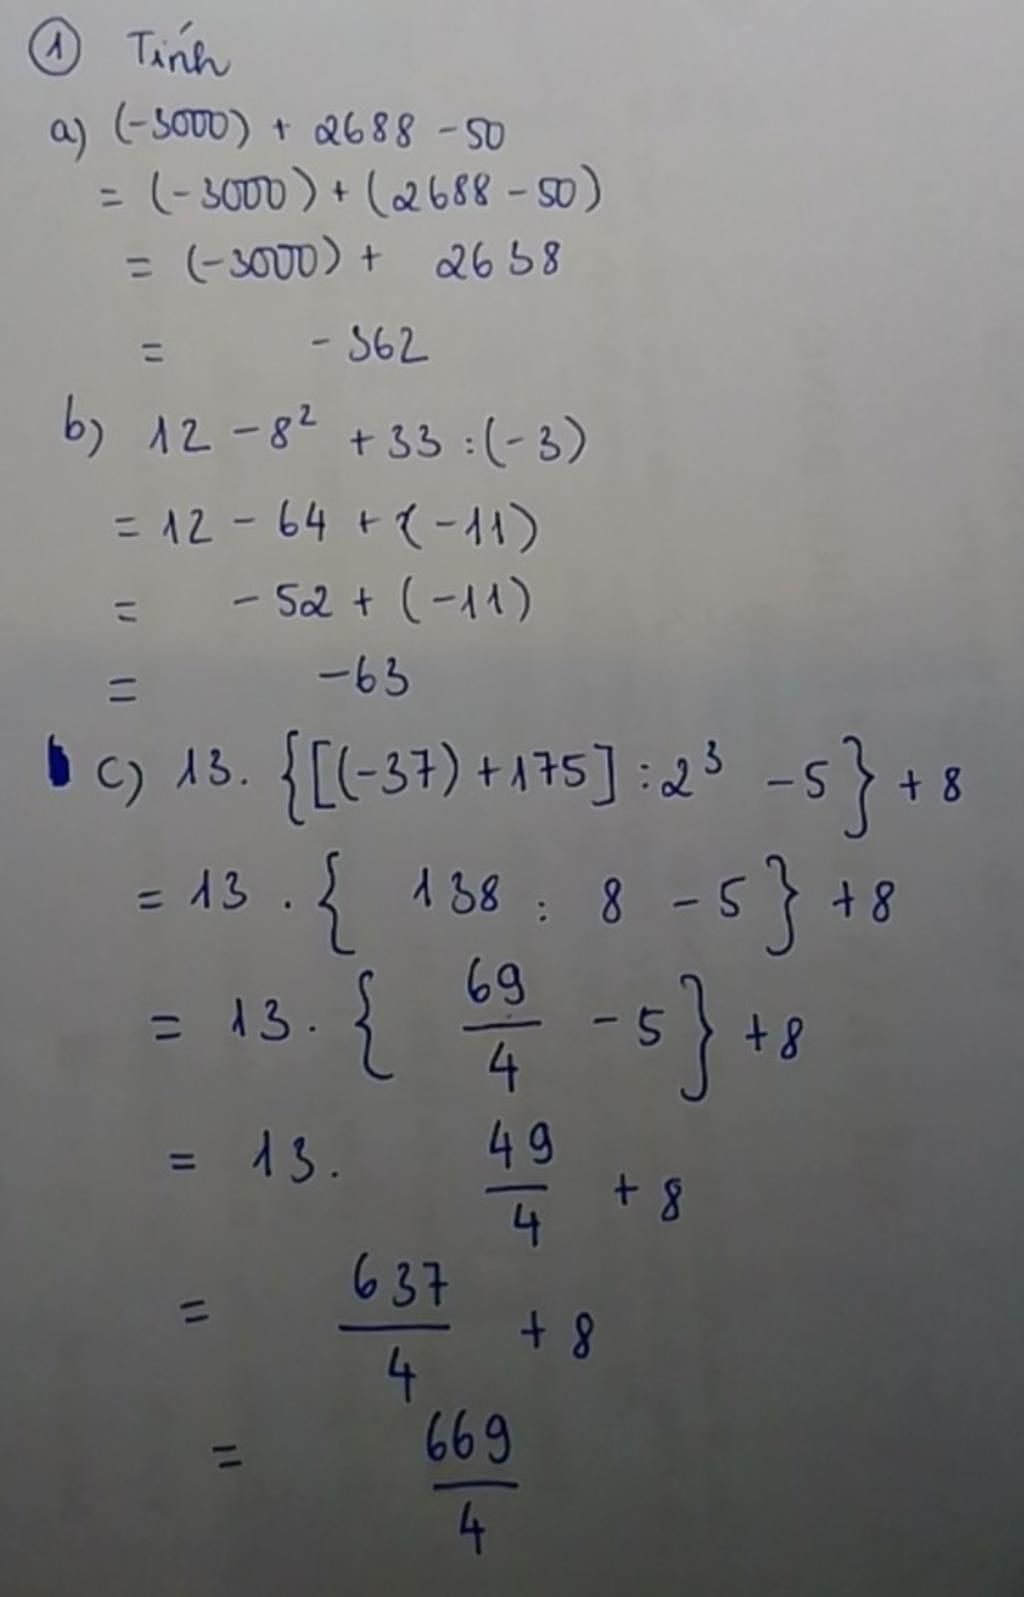 ① Tính
a) (-3000) + 2688 - 50
= (-3000) + (2688 - 50)
= (-3000) + 2638
= - 362
b) 12 - 8² + 33 : (-3)
= 12 - 64 + (-11)
= - 52 + (-11)
= -63
c) 13. {[(-37) + 175] : 2³ - 5} + 8
= 13 . { 138 : 8 - 5} + 8
= 13 . { 69/4 - 5} + 8
= 13. 49/4 + 8
= 637/4 + 8
= 669/4